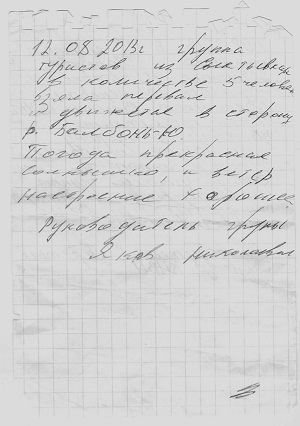 12.08.2013г группа
туристов из Сыктывкара
в количестве 5 человек
взяла перевал
и движется в сторону
р. Балбонь-Ю
Погода прекрасная
солнышко, и ветер
настроение хорошее
Руководитель групы
Яков Николаевич